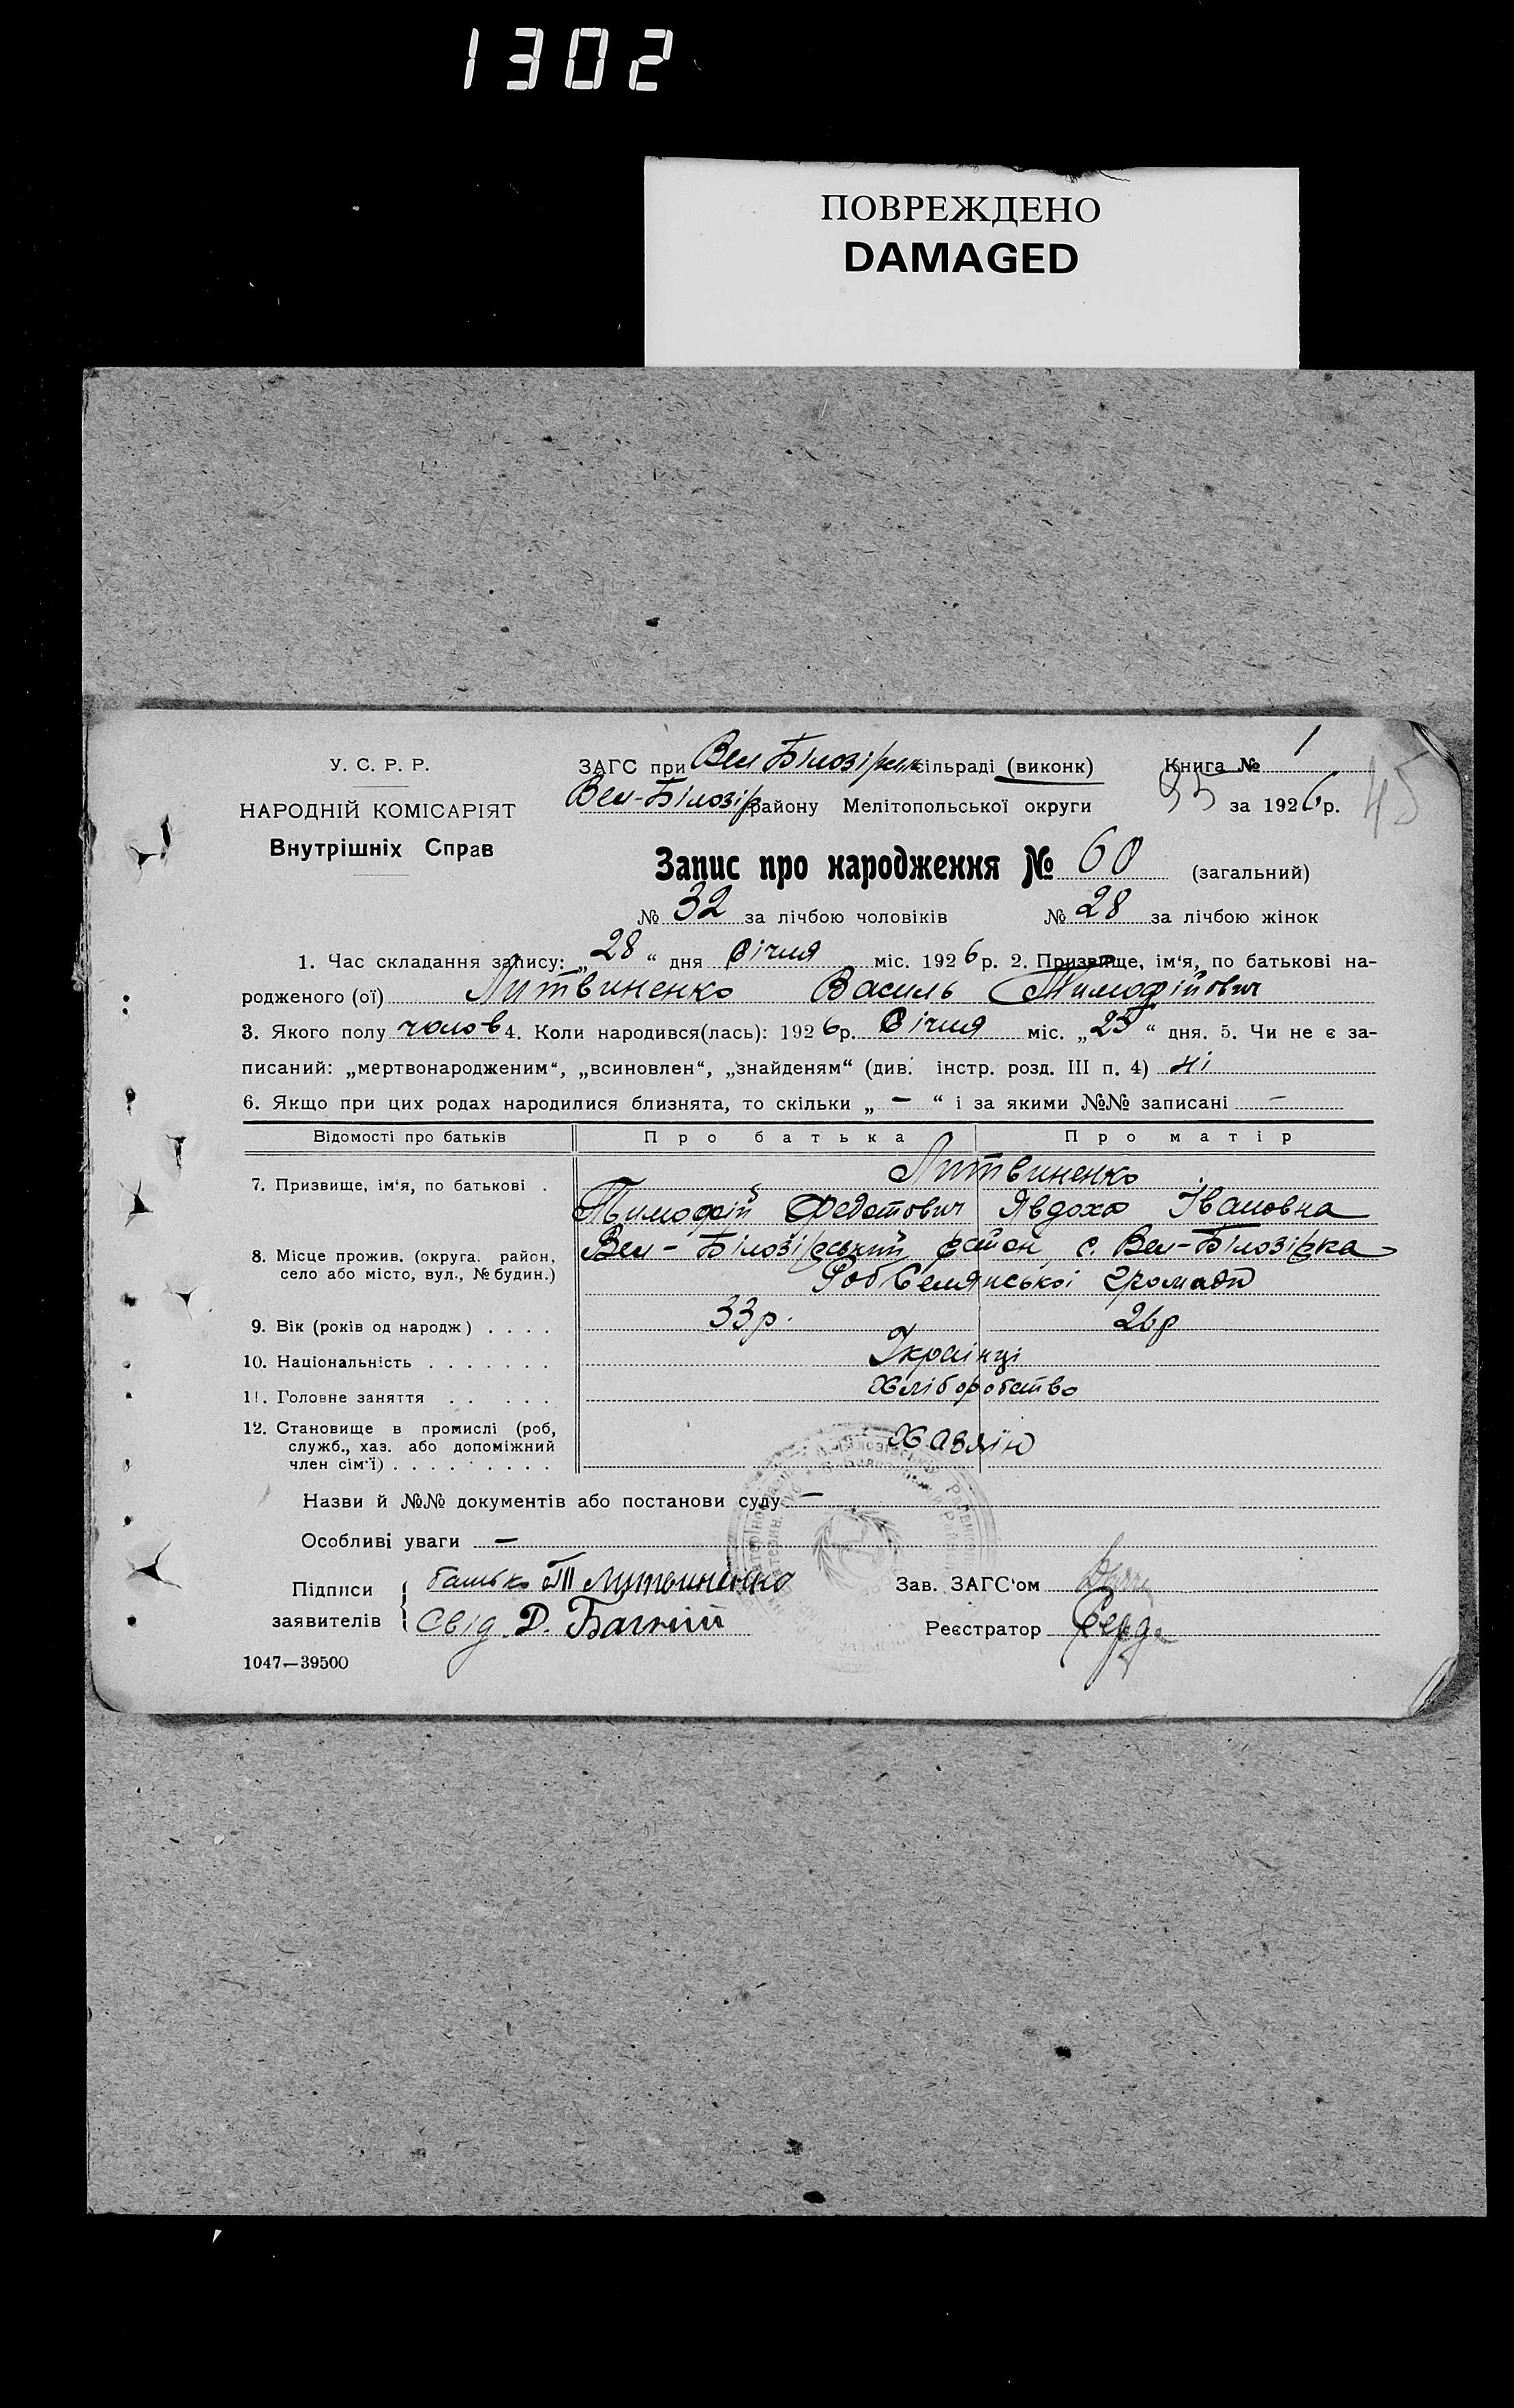 1302
ПОВРЕЖДЕНО
DAMAGED
У. С. Р. Р.
НАРОДНІЙ КОМІСАРІЯТ
Внутрішніх Справ
ЗАГС при Вел Білозірськ сільраді (виконк) Книга № 1
Вел-Білозір району Мелітопольської округи 95 за 1926 р. 45
Запис про народження № 60 (загальний)
№ 32 за лічбою чоловіків № 28 за лічбою жінок
1. Час складання запису: „28“ дня Січня міс. 1926 р. 2. Призвище, ім‘я, по батькові на-
родженого (ої) Литвиненко Василь Тимофійович
3. Якого полу чолов 4. Коли народився(лась): 1926 р. Січня міс. „25“ дня. 5. Чи не є за-
писаний: „мертвонародженим“, „всиновлен“, „знайденям“ (див. інстр. розд. III п. 4) ні
6. Якщо при цих родах народилися близнята, то скільки „ — “ і за якими №№ записані —
Відомості про батьків Про батька Про матір
7. Призвище, ім‘я, по батькові . Литвиненко
Тимофій Федотович Явдоха Івановна
8. Місце прожив. (округа. район, село або місто, вул., № будин.) Вел-Білозірський район, с. Вел-Білозірка
Роб Селянської громади
9. Вік (років од народж) . . . . 33 р. 26 р
10. Національність . . . . . . . Українці
11. Головне заняття . . . . . Хліборобство
12. Становище в промислі (роб, служб., хаз. або допоміжний член сім‘ї) . . . . . . . . . Хазяїн
Назви й №№ документів або постанови суду —
Особливі уваги —
Підписи заявителів { батько Т Литвиненко
Свід. Д. Багний
Зав. ЗАГС‘ом
Реєстратор Серд
1047—39500